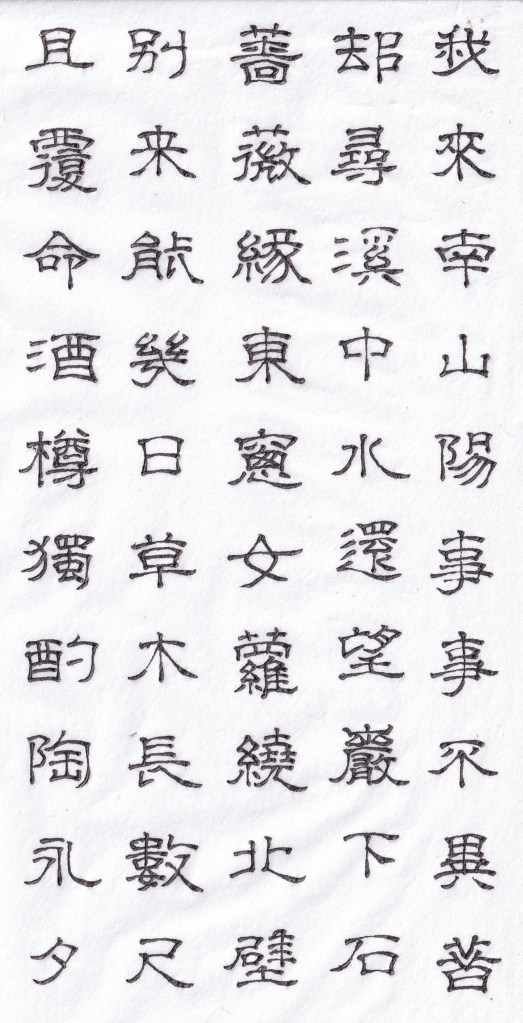 我來南山陽事事不異昔
却尋溪中水還望巖下石
薔薇緣東窻女蘿繞北壁
别来能幾日草木長數尺
且覆命酒樽獨酌陶永夕